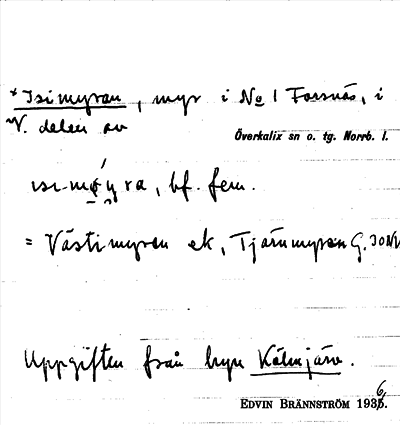 *Isimyran, myr i No 1 Forsnäs, i
V. delen av
Överkalix sn o. tg. Norrb. l.
bf. fem.
= Västimyran ek, Tjärnmyran G.
Uppgiften från byn Kölmjärv.
EDVIN BRÄNNSTRÖM 1936.